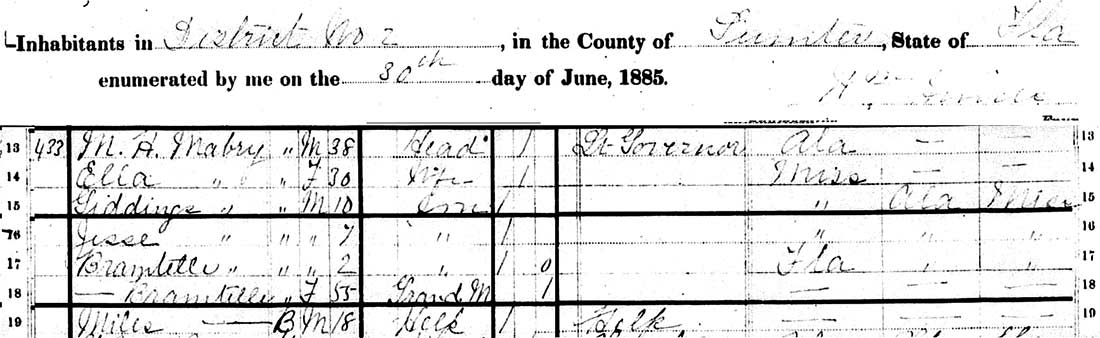 Inhabitants in District No 2, in the County of Sumter, State of Fla
enumerated by me on the 30th day of June, 1885.
13 433 M. H. Mabry " M 38 Head 1 Lt Governor Ala — — 13
14 Ella " " F 30 Wife 1 Miss — — 14
15 Giddings " " M 10 Son 1 " Ala Miss 15
16 Jesse " " " 7 " 1 " " " 16
17 Bramlette " " " 2 " 1 0 Fla " " 17
18 — Bramlette " F 55 Grand M 1 — — — 18
19 Miles — B M 18 Help 1 — — — 19